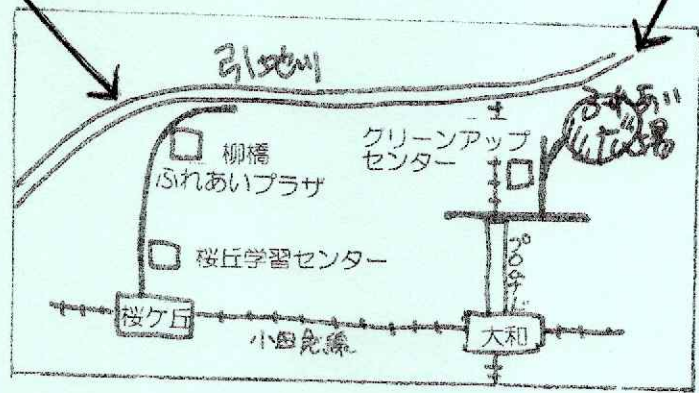 引地川
柳橋
ふれあいプラザ
クリーンアップ
センター
ふれあい
広場
桜丘学習センター
プロムナード
桜ケ丘
小田急線
大和